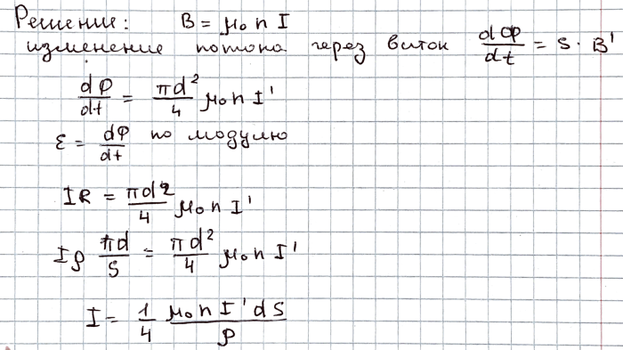 Решение: B = μ₀ n I
изменение потока через виток dφ/dt = S · B'
dφ/dt = πd²/4 μ₀ n I'
ε = dφ/dt по модулю
IR = πd²/4 μ₀ n I'
Iρ πd/S = πd²/4 μ₀ n I'
I = 1/4 μ₀ n I' d S/ρ